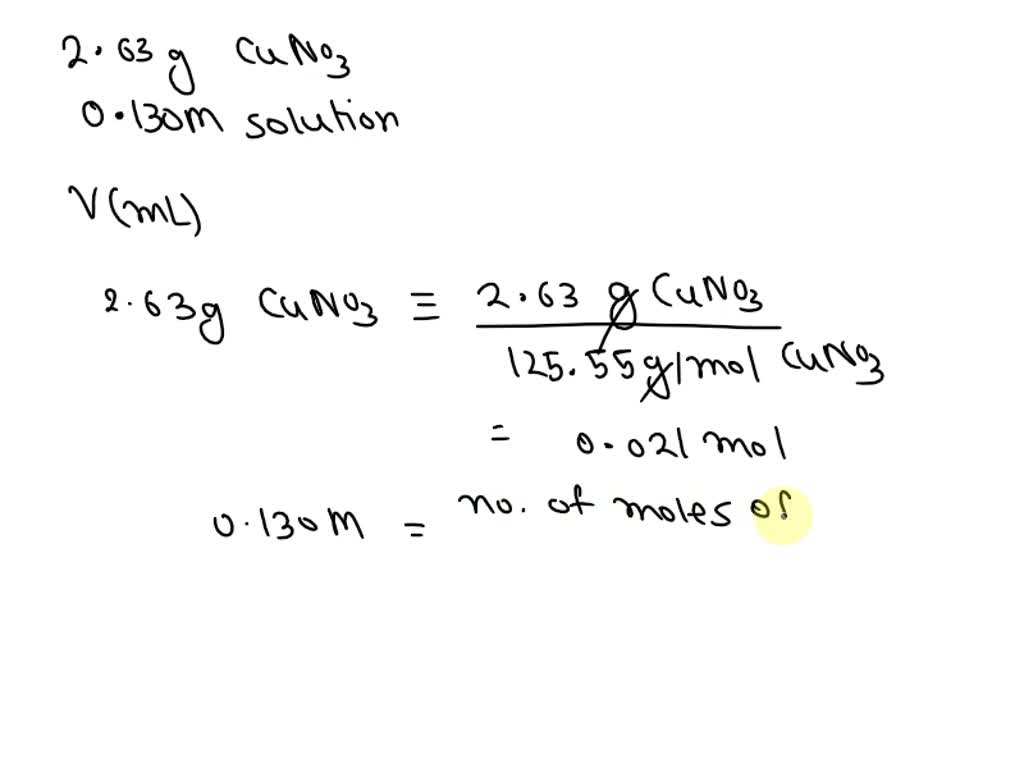 2.63 g CuNO3
0.130M solution
V(mL)
2.63g CuNO3 ≡ 2.63 g CuNO3
125.55g/mol CuNO3
= 0.021 mol
0.130M = no. of moles of